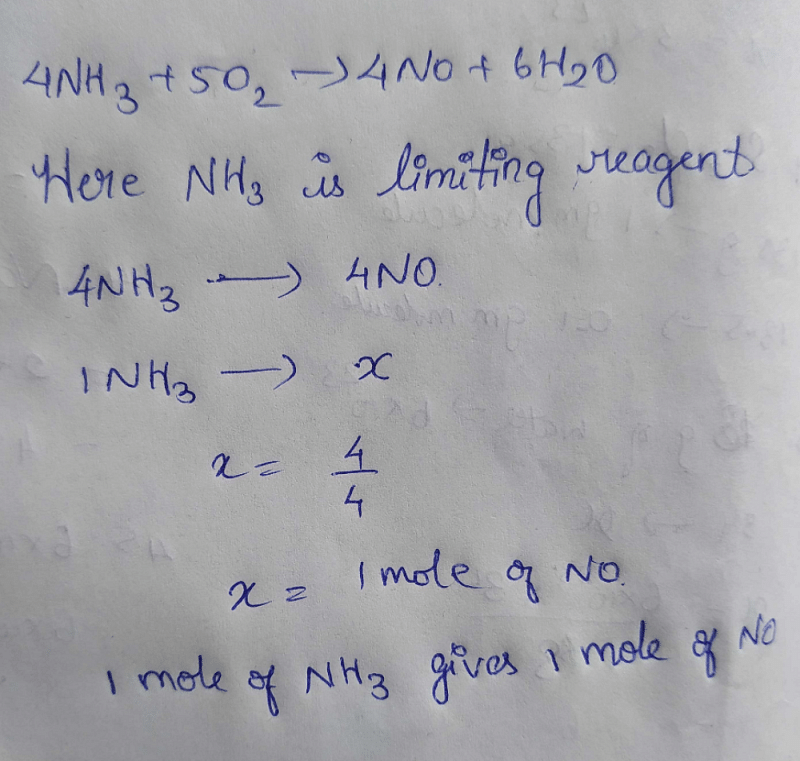 4NH₃ + 5O₂ → 4NO + 6H₂O
Here NH₃ is limiting reagent
4NH₃ → 4NO.
1NH₃ → x
x = 4/4
x = 1 mole of NO.
1 mole of NH₃ gives 1 mole of NO